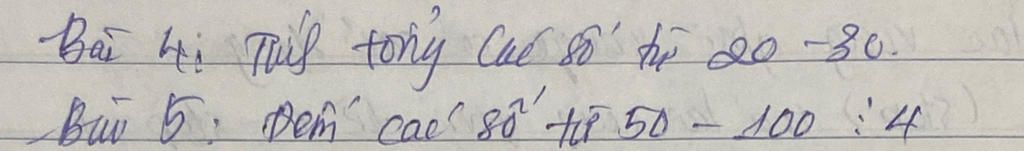 Bài 4: Tính tổng các số từ 20 - 30.
Bài 5: Đếm các số từ 50 - 100 : 4